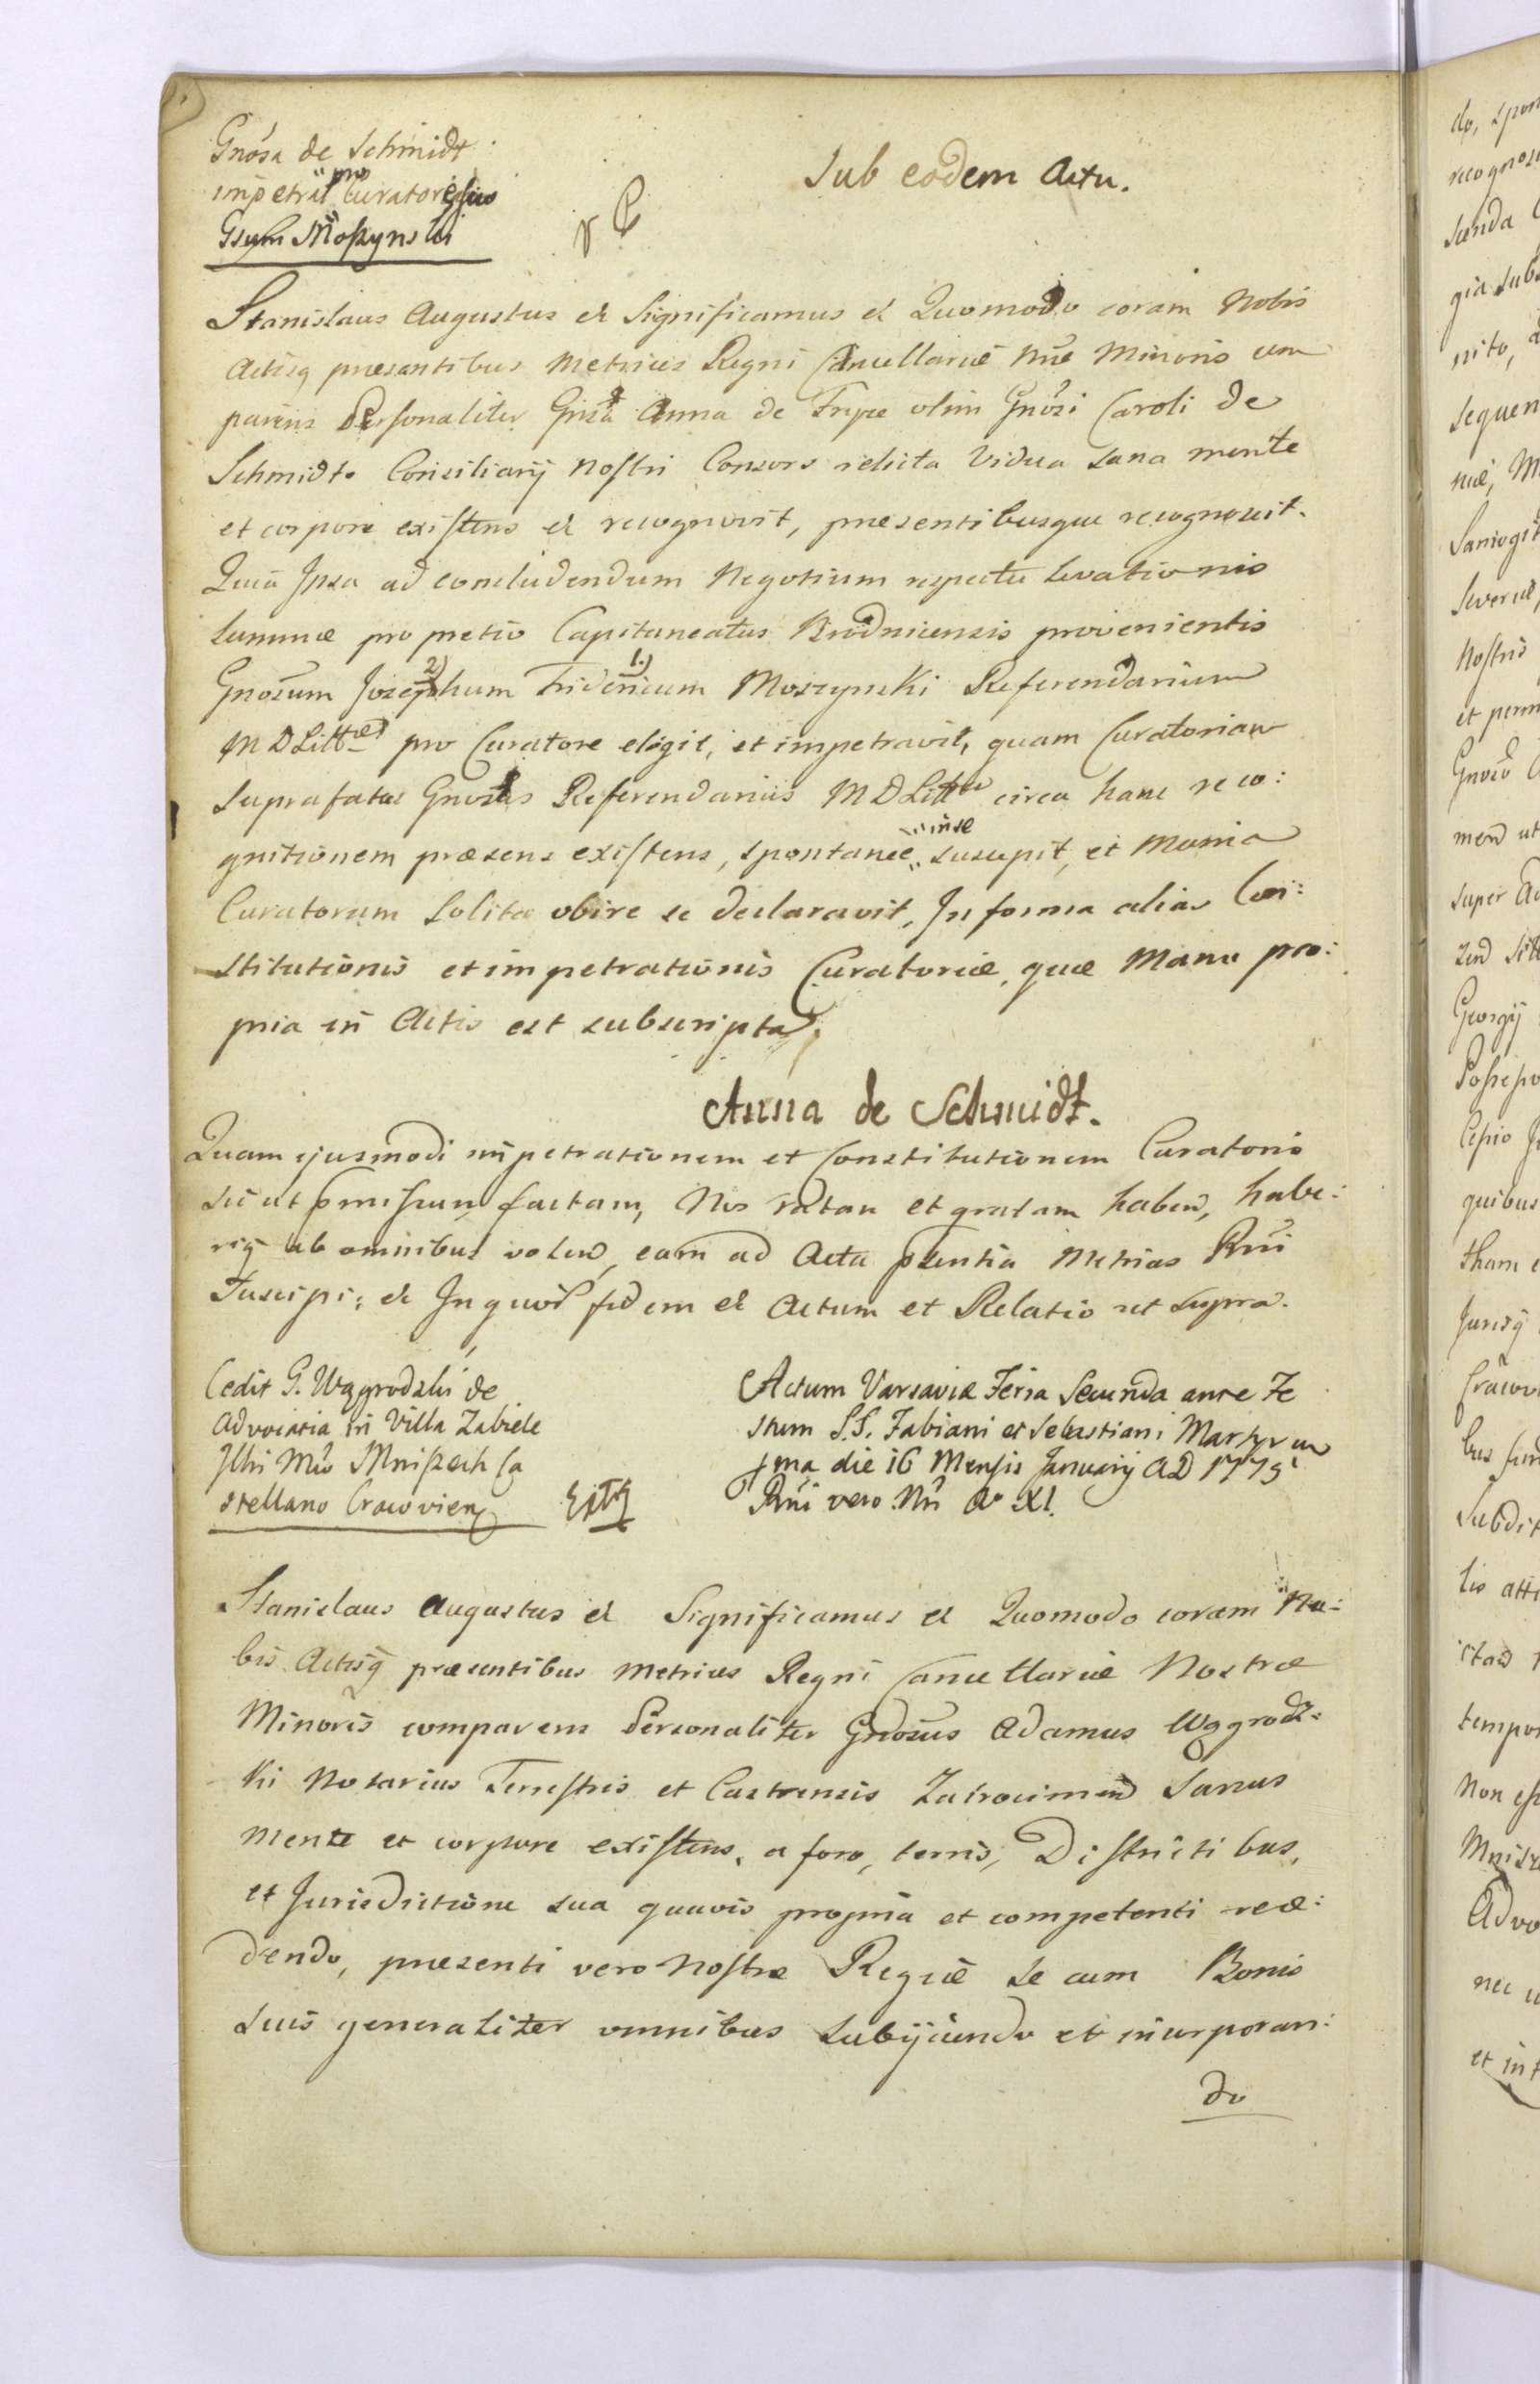 Gnosa de Schmidt
impetrat pro Curatore suo
Gsum Moszynski
Sub eodem Actu.
Stanislaus Augustus et Significamus et Quomodo coram Nobis
Actisq praesentibus Metrices Regni Cancellariae Nrae Minoris com
parens Personaliter Gnsa Anna de Frype olim Gnosi Caroli de
Schmidt Consiliarij Nostri Consors relicta Vidua sana mente
et corpore existens et recognovit, praesentibusque recognoscit.
Quia Ipsa ad concludendum Negotium respectu levationis
Summae pro pretio Capitaneatus Brodnicensis provenientis
Gnosum Josephum 2) Fridericum 1.) Moszynski Referendarium
M D Litt pro Curatore eligit, et impetravit, quam Curatoriam
Suprafatus Gnosus Referendarius M D Litt circa hanc reco:
gnitionem praesens existens, spontanee in se suscepit, et Munia
Curatorum Solita obire se declaravit, In forma alias Con:
stitutionis et impetrationis Curatoriae, quae Manu pro:
pria in Actis est subscripta.
Anna de Schmidt.
Quam ejusmodi impetrationem et Constitutionem Curatoris
sicut pmissum factam, Nos ratam et gratam haben, habe:
riq ab omnibus volen, eam ad Acta psentia Metrices Rni
Suscipi: et In quor fidem et Actum et Relatio ut supra.
Cedit G. Wągrodzki de
Advocatia in Villa Zabiele
Illri Mco Mniszech Ca
stellano Cracovien
Actum Varsaviae Feria Secunda ante Fe
stum S.S. Fabiani et Sebastiani Martyrum
die 16 Mensis Januarij A D 1775
Rni vero Nri Ao XI.
Stanislaus Augustus et Significamus et Quomodo coram No:
bis Actisq praesentibus Metrices Regni Cancellariae Nostrae
Minoris comparens Personaliter Gnosus Adamus Wągrodz:
ki Notarius Terrestris et Castrensis Zakrocimen Sanus
mente et corpore existens, a foro, terris, Districtibus,
et Jurisdictione sua quavis propria et competenti rece:
dendo, praesenti vero Nostrae Regiae se cum Bonis
suis generaliter omnibus subijciendo et incorporan:
do